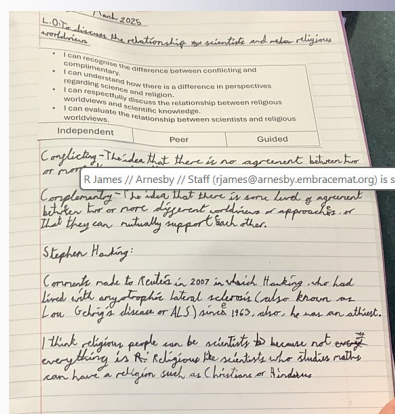 March 2025
L.O: To discuss the relationship scientists and religious
worldviews
• I can recognise the difference between conflicting and
complimentary.
• I can understand how there is a difference in perspectives
regarding science and religion.
• I can respectfully discuss the relationship between religious
worldviews and scientific knowledge.
• I can evaluate the relationship between scientists and religious
worldviews.
Independent Peer Guided
Conflicting - The idea that there is no agreement between two
or more
R James // Arnesby // Staff (rjames@arnesby.embracemat.org) is s
Complementary - The idea that there is some level of agreement
between two or more different worldviews or approaches, or
that they can mutually support each other.
Stephen Hawking:
Comments made to Reuters in 2007 in which Hawking, who had
lived with amyotrophic lateral sclerosis (also known as
Lou Gehrig's disease or ALS) since 1963, also, he was an athiest.
I think religious people can be scientists because not
everything is Religious like scientists who studies maths
can have a religion such as Christians or